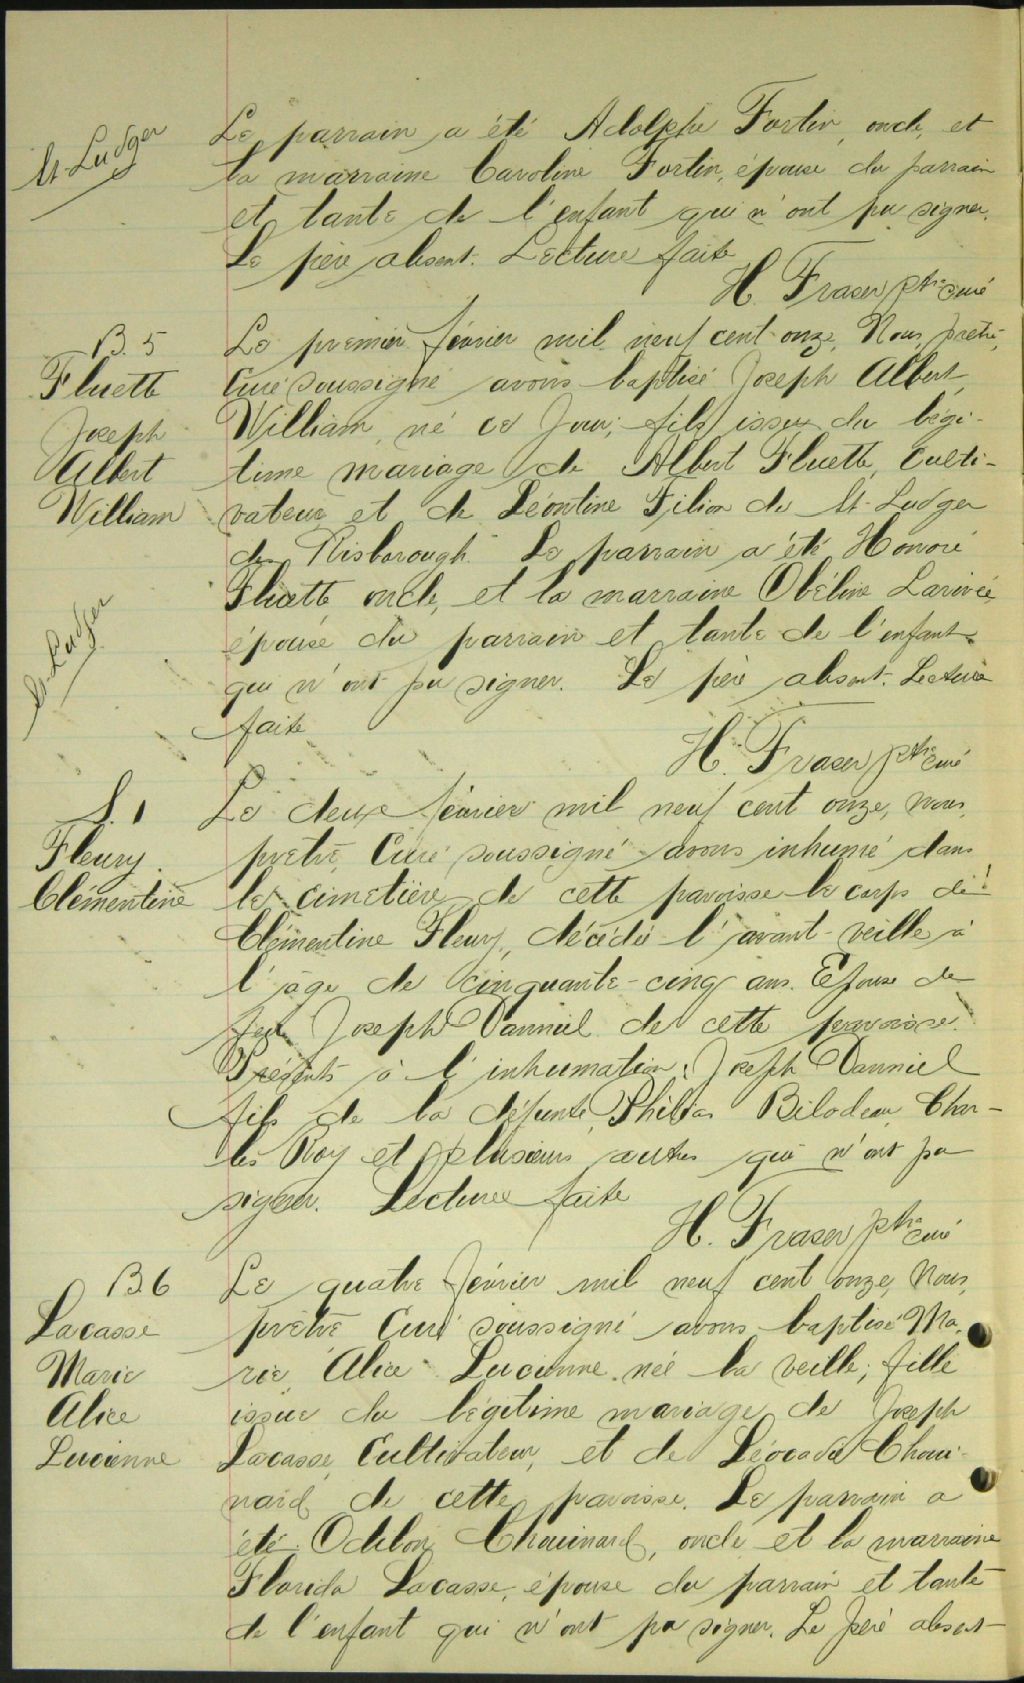 St-Ludger
Le parrain a été Adolphe Fortin, oncle, et
la marraine Caroline Fortin, épouse du parrain
et tante de l'enfant qui n'ont pu signer.
Le père absent. Lecture faite
H. Fraser ptre curé
B. 5
Fluette
Joseph
Albert
William
St-Ludger
Le premier février mil neuf cent onze, Nous, prêtre,
Curé soussigné avons baptisé Joseph Albert
William, né ce jour, fils issu du légi-
time mariage de Albert Fluette, Culti-
vateur, et de Léontine Filion de St-Ludger
de Risborough. Le parrain a été Honoré
Fluette oncle, et la marraine Obéline Larivée,
épouse du parrain et tante de l'enfant
qui n'ont pu signer. Le père absent. Lecture
faite
H. Fraser ptre curé
S. 1
Fleury
Clémentine
Le deux février mil neuf cent onze, nous,
prêtre, Curé soussigné avons inhumé dans
le cimetière de cette paroisse le corps de
Clémentine Fleury, décédée l'avant-veille à
l'âge de cinquante-cinq ans. Epouse de
feu Joseph Danniel de cette paroisse.
Présents à l'inhumation, Joseph Danniel
fils de la défunte, Philias Bilodeau, Char-
les Roy et plusieurs autres qui n'ont pu
signer. Lecture faite
H. Fraser ptre curé
B6
Lacasse
Marie
Alice
Lucienne
Le quatre février mil neuf cent onze, Nous,
prêtre Curé soussigné avons baptisé Ma-
rie Alice Lucienne, née la veille, fille
issue du légitime mariage de Joseph
Lacasse, Cultivateur, et de Léocadie Choui-
nard de cette paroisse. Le parrain a
été Odilon Chouinard, oncle et la marraine
Florida Lacasse, épouse du parrain et tante
de l'enfant qui n'ont pu signer. Le père absent